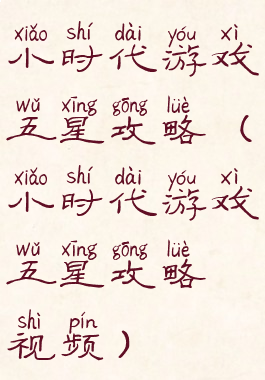 xiǎo shí dài yóu xì
小时代游戏
wǔ xīng gōng lüè
五星攻略（
xiǎo shí dài yóu xì
小时代游戏
wǔ xīng gōng lüè
五星攻略
shì pín
视频）